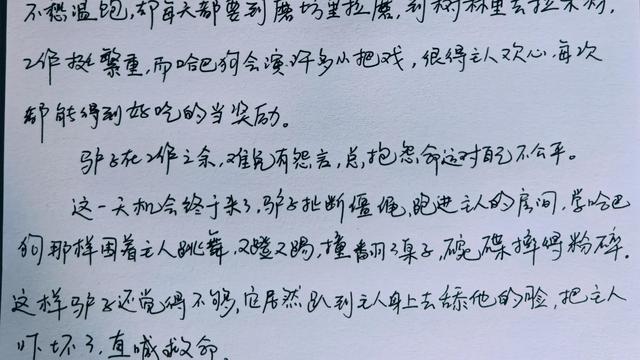 不愁温饱,却每天都要到磨坊里拉磨,到树林里去拉木材,
工作挺繁重,而哈巴狗会演许多小把戏,很得主人欢心,每次
都能得到好吃的当奖励。
驴子在工作之余,难免有怨言,总抱怨命运对自己不公平。
这一天机会终于来了,驴子扯断缰绳,跑进主人的房间,学哈巴
狗那样围着主人跳舞,又蹬又踢,撞翻了桌子,碗碟摔得粉碎。
这样驴子还觉得不够,它居然趴到主人身上去舔他的脸,把主人
吓坏了,直喊救命。